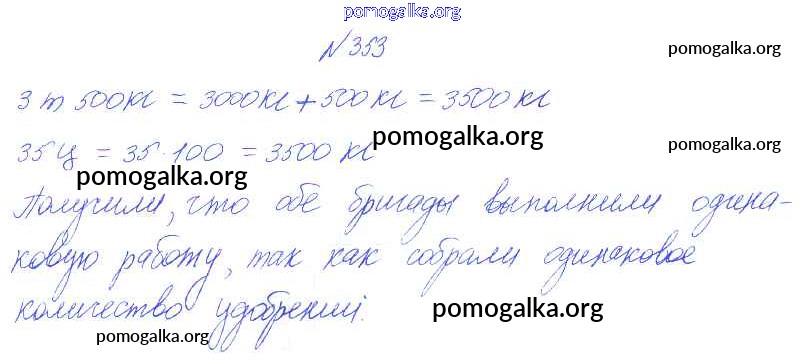 pomogalka.org
N 353
pomogalka.org
3 т 500 кг = 3000 кг + 500 кг = 3500 кг
35 ц = 35 · 100 = 3500 кг
pomogalka.org
pomogalka.org
pomogalka.org
Получили, что обе бригады выполнили одина-
ковую работу, так как собрали одинаковое
количество удобрений.
pomogalka.org
pomogalka.org